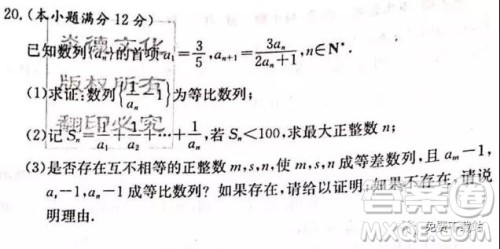 20.(本小题满分 12 分)
已知数列{aₙ}的首项 a₁=3/5, aₙ₊₁=3aₙ/(2aₙ+1), n∈N*.
(1)求证:数列{1/aₙ-1}为等比数列;
(2)记 Sₙ=1/a₁+1/a₂+…+1/aₙ,若 Sₙ<100,求最大正整数 n;
(3)是否存在互不相等的正整数 m,s,n,使 m,s,n 成等差数列,且 aₘ-1,
aₛ-1,aₙ-1 成等比数列? 如果存在,请给以证明;如果不存在,请说
明理由.
炎德文化
版权所有
翻印必究